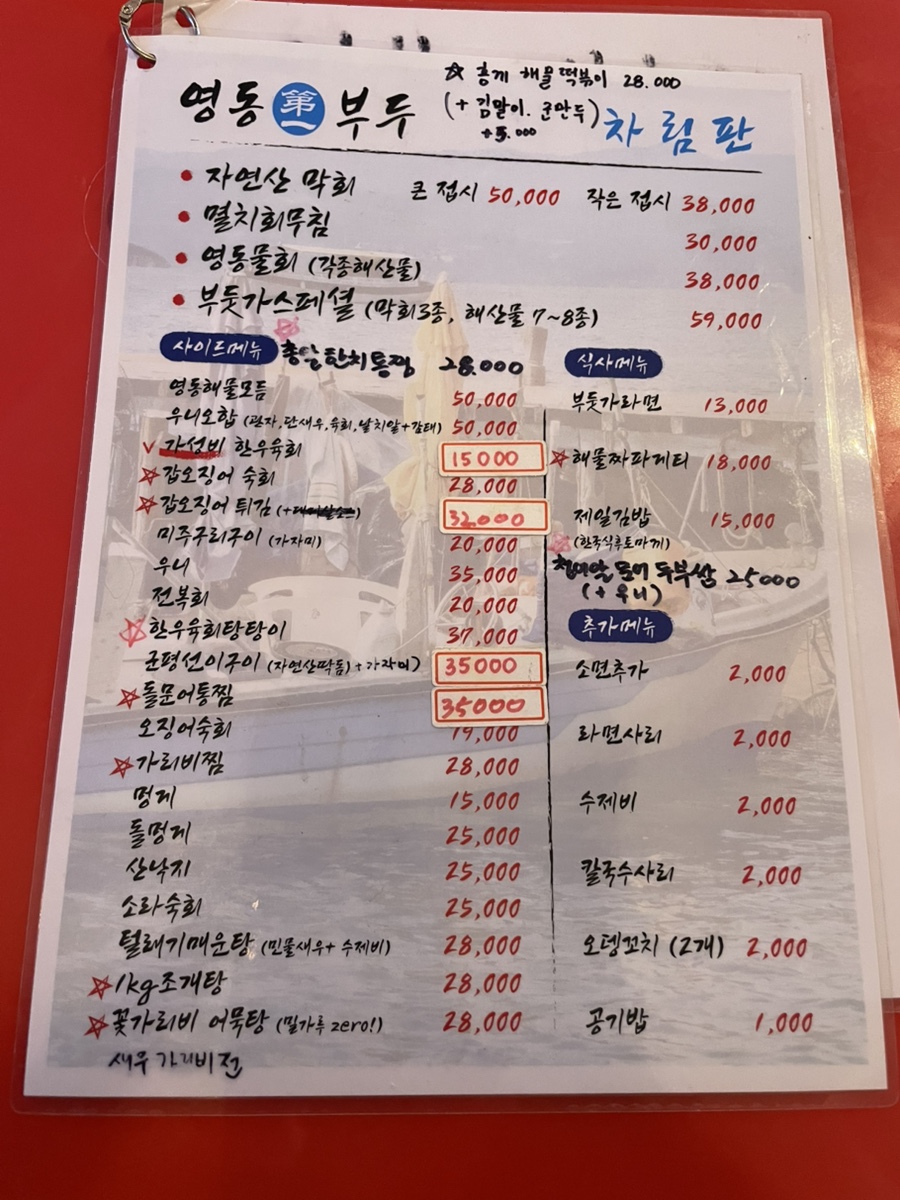 ☆ 홍게 해물떡볶이 28.000
(+ 김말이. 군만두)
+5.000
영동 第一 부두 차림판
• 자연산 막회 큰 접시 50,000 작은 접시 38,000
• 멸치회무침 30,000
• 영동물회 (각종해산물) 38,000
• 부둣가스페셜 (막회3종, 해산물 7~8종) 59,000
사이드메뉴
총알한치통찜 28.000
영동해물모듬 50,000
우니오합 (관자,단새우,육회,날치알+감태) 50,000
가성비 한우육회 15000
☆갑오징어 숙회 28,000
☆갑오징어 튀김 32000
미주구리구이 (가자미) 20,000
우니 35,000
전복회 20,000
☆한우육회탕탕이 37,000
군평선이구이 (자연산딱돔)+가자미) 35000
☆돌문어통찜 35000
오징어숙회 19,000
☆가리비찜 28,000
멍게 15,000
돌멍게 25,000
산낙지 25,000
소라숙회 25,000
털래기매운탕 (민물새우+ 수제비) 28,000
☆1kg조개탕 28,000
☆꽃가리비 어묵탕 (밀가루 zero!) 28,000
새우 가리비 전
식사메뉴
부둣가라면 13,000
☆해물짜파게티 18,000
제일김밥 15,000
(한국식후토마끼)
두부쌈 25000
(+우니)
추가메뉴
소면추가 2,000
라면사리 2,000
수제비 2,000
칼국수사리 2,000
오뎅꼬치 (2개) 2,000
공기밥 1,000